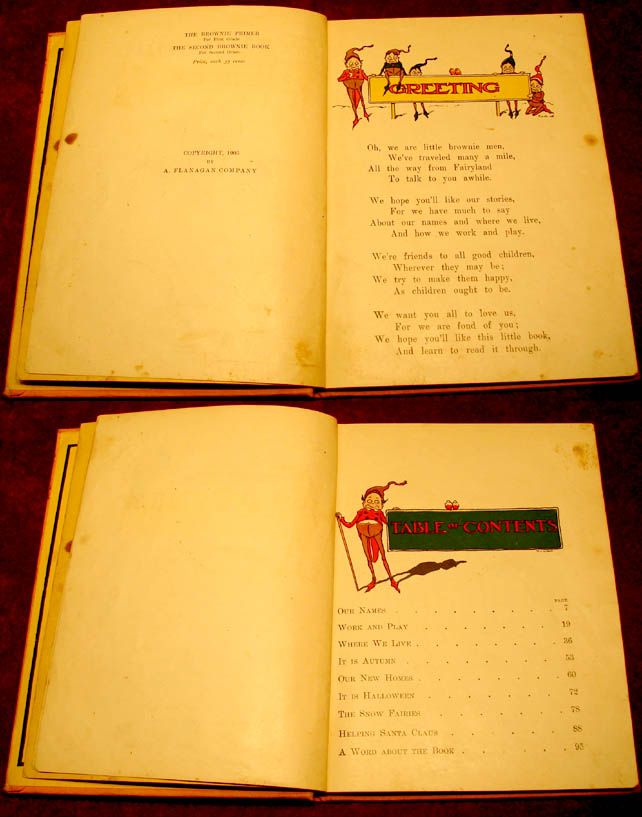 THE BROWNIE PRIMER
For First Grade
THE SECOND BROWNIE BOOK
For Second Grade
Price, each 35 cents
COPYRIGHT, 1905
BY
A. FLANAGAN COMPANY
GREETING
Oh, we are little brownie men,
We've traveled many a mile,
All the way from Fairyland
To talk to you awhile.
We hope you'll like our stories,
For we have much to say
About our names and where we live,
And how we work and play.
We're friends to all good children,
Wherever they may be;
We try to make them happy,
As children ought to be.
We want you all to love us,
For we are fond of you;
We hope you'll like this little book,
And learn to read it through.
TABLE OF CONTENTS
PAGE
OUR NAMES . . . . . . . 7
WORK AND PLAY . . . . . . 19
WHERE WE LIVE . . . . . . 36
IT IS AUTUMN . . . . . . 53
OUR NEW HOMES . . . . . . 60
IT IS HALLOWEEN . . . . . . 72
THE SNOW FAIRIES . . . . . . 78
HELPING SANTA CLAUS . . . . . 88
A WORD ABOUT THE BOOK . . . . . 95